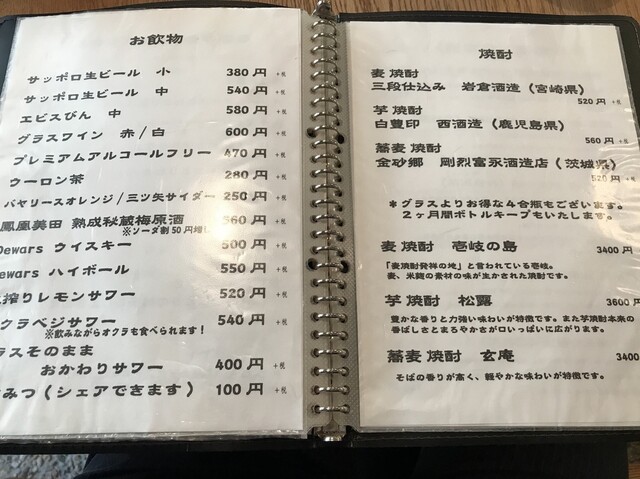 お飲物
サッポロ生ビール 小 380円 +税
サッポロ生ビール 中 540円 +税
エビスびん 中 580円 +税
グラスワイン 赤/白 600円 +税
プレミアムアルコールフリー 470円 +税
ウーロン茶 280円 +税
バヤリースオレンジ/三ツ矢サイダー 250円 +税
鳳凰美田 熟成秘蔵梅原酒 560円 +税
※ソーダ割50円増し
Dewars ウイスキー 500円 +税
ewars ハイボール 550円 +税
搾りレモンサワー 520円 +税
クラベジサワー 540円 +税
※飲みながらオクラも食べられます!
ラスそのまま
おかわりサワー 400円 +税
みつ(シェアできます) 100円 +税
焼酎
麦焼酎
三段仕込み 岩倉酒造(宮崎県)
520円 +税
芋焼酎
白豊印 西酒造(鹿児島県)
560円 +税
蕎麦焼酎
金砂郷 剛烈富永酒造店(茨城県)
520円 +税
*グラスよりお得な4合瓶もございます。
2ヶ月間ボトルキープもいたします。
麦焼酎 壱岐の島 3400円
「麦焼酎発祥の地」と言われている壱岐。
麦、米麹の素材の味が生かされた焼酎です。
芋焼酎 松露 3600円
豊かな香りと力強い味わいが特徴です。また芋焼酎本来の
香ばしさとまろやかさが口いっぱいに広がります。
蕎麦焼酎 玄庵 3400
そばの香りが高く、軽やかな味わいが特徴です。